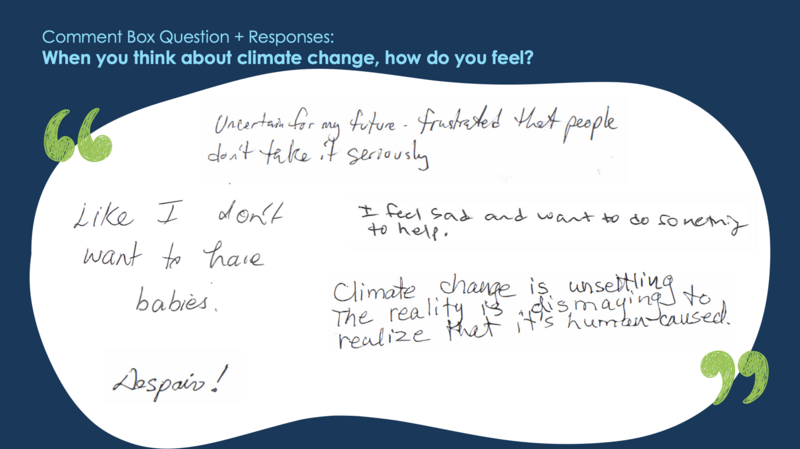 Comment Box Question + Responses:
When you think about climate change, how do you feel?
Uncertain for my future - frustrated that people
don't take it seriously
Like I don't
want to have
babies.
I feel sad and want to do something
to help.
Climate change is unsettling
The reality is dismaying to
realize that it's human-caused.
Despair!